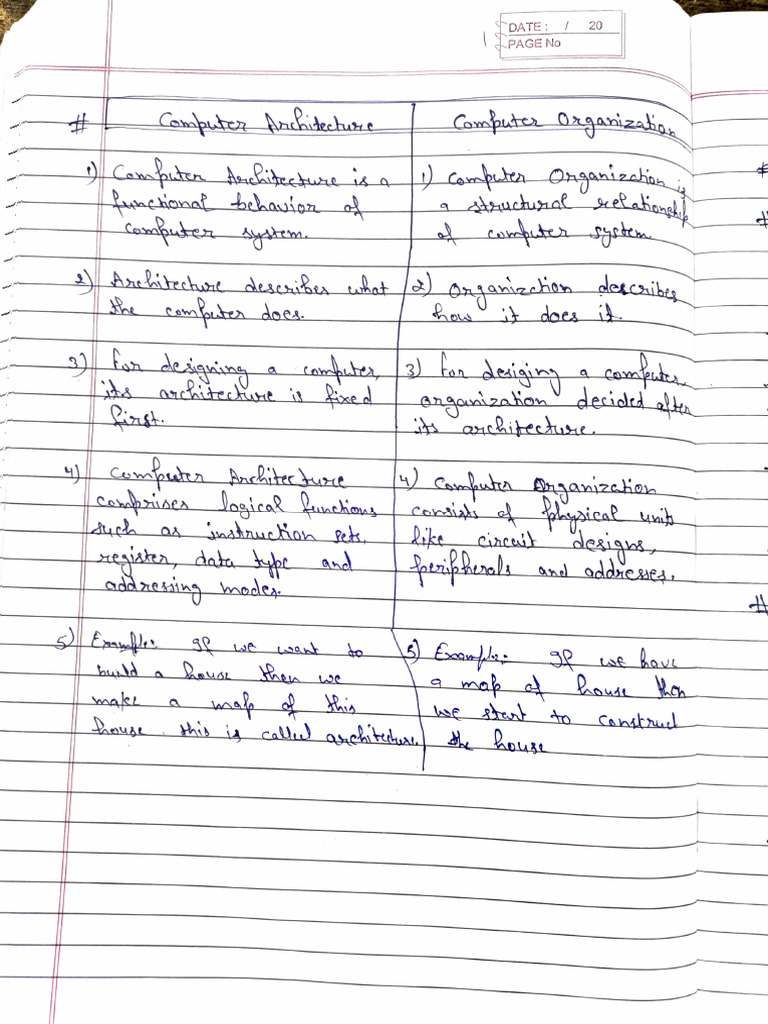 DATE: / 20
PAGE No
# Computer Architecture
1) Computer Architecture is a
functional behavior of
computer system.
2) Architecture describes what
the computer does.
3) For designing a computer,
its architecture is fixed
first.
4) Computer Architecture
comprises logical functions
such as instruction sets,
register, data type and
addressing modes.
5) Example: If we want to
build a house then we
make a map of this
house this is called architecture
Computer Organization
1) Computer Organization is
a structural relationship
of computer system
2) Organization describes
how it does it.
3) For desiging a computer
organization decided after
its architecture.
4) Computer Organization
consists of physical units
like circuit designs,
peripherals and addresses.
5) Example: If we have
a map of house then
we start to construct
the house
#
#
#